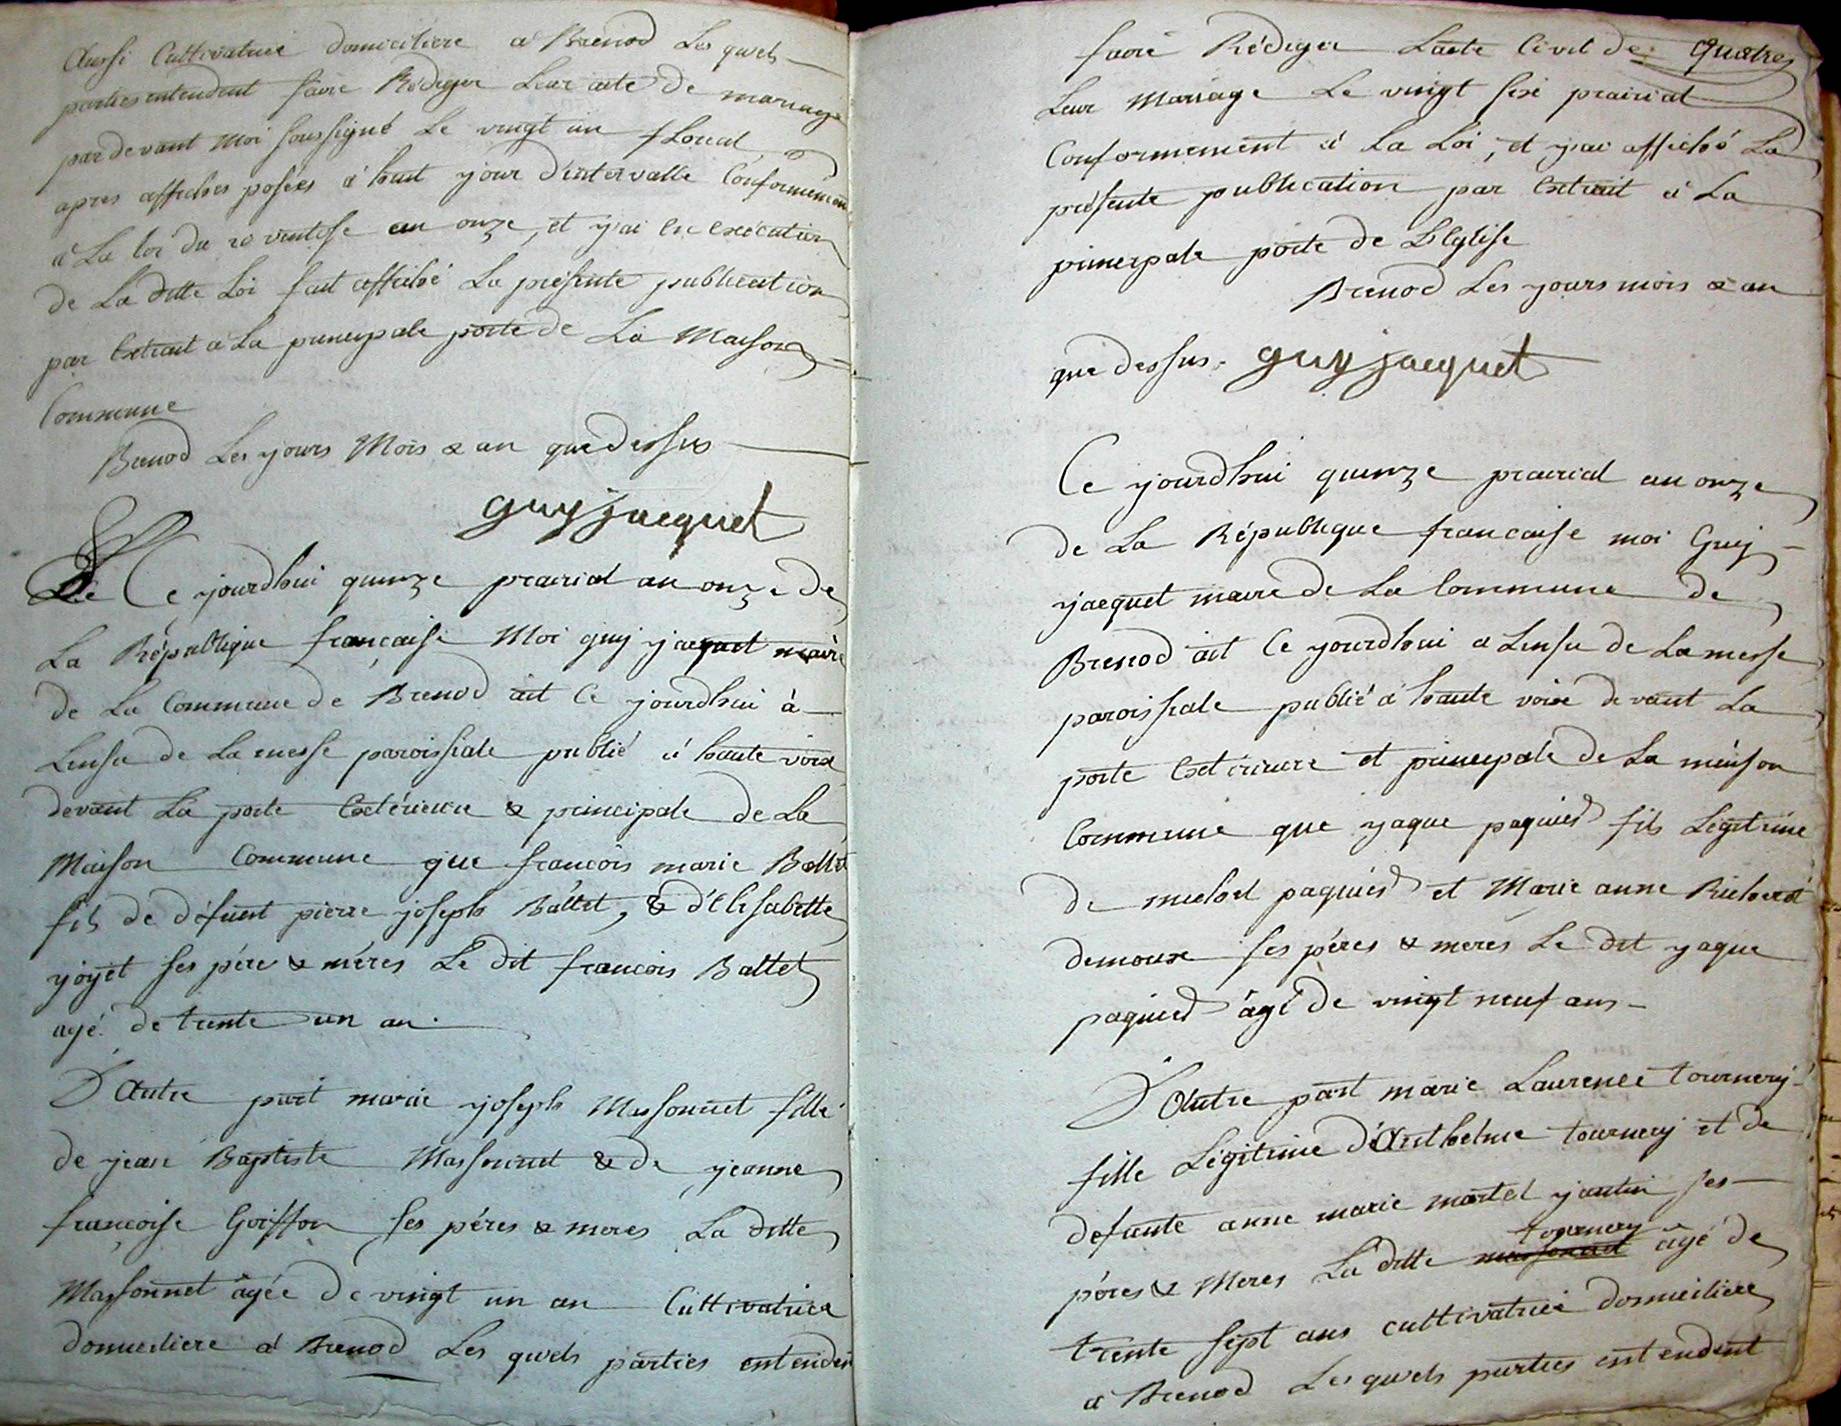 Aussi Cultivatrice domiciliere a Brenod Les quels
parties entendent faire Rédiger Leur acte de mariage
par devant Moi soussigné Le vingt un floreal
apres affiches posées a huit yjour d'intervalle Conformement
a La loi du 20 ventose an onze, et y'ai en execution
de La ditte Loi fait affiché La présente publication
par Extrait a La principale porte de La Maison
Commune
Brenod Les yjours Mois & an que dessus
guy jacquet
Ce yjourdhui quinze prairial an onze de
La République francaise Moi guy yjacquet maire
de La Commune de Brenod ait Ce yjourdhui à
Linsu de La messe paroissiale publié à haute voix
devant La porte Extérieure & principale de La
Maison Commune que francois marie Baltet
fils de défunt pierre joseph Baltet, & d'Elisabette
yjoyet ses pére & méres Le dit francois Baltet
agé de trente un an.
D'autre part marie yjoseph Massonnet fille
de yjean Baptiste Massonnet & de yjeanne
francoise Goiffon ses péres & meres La ditte
Massonnet âgée de vingt un an Cultivatrice
domiciliere a Brenod Les quels parties entendent
faire Rédiger Lacte Civil de quatres
Leur Mariage Le vingt six prairial
Conformément à La Loi, et y'ai affiché La
présente publication par Extrait à La
principale porte de L'Eglise
Brenod Les yjours mois & an
que dessus. guy jacquet
Ce yjourdhui quinze prairial an onze
de La République francaise moi Guy
yjacquet maire de La Commune de
Brenod ait Ce yjourdhui a Linsu de La messe
paroissiale publié à haute voix devant La
porte Extérieure et principale de La maison
Commune que yjaque paquied fils Légitime
de michel paquied et Marie anne Richerot
demoux ses péres & meres Le dit yjaque
paquied âgé de vingt neuf ans
D'Autre part marie Laurence tournery
fille Légitime d'Anthelme tournery et de
defunte anne marie martel yjantin ses
tournery
péres & Meres La ditte massonnet âgé de
trente sept ans cultivatrice domiciliere
a Brenod Les quels parties entendent